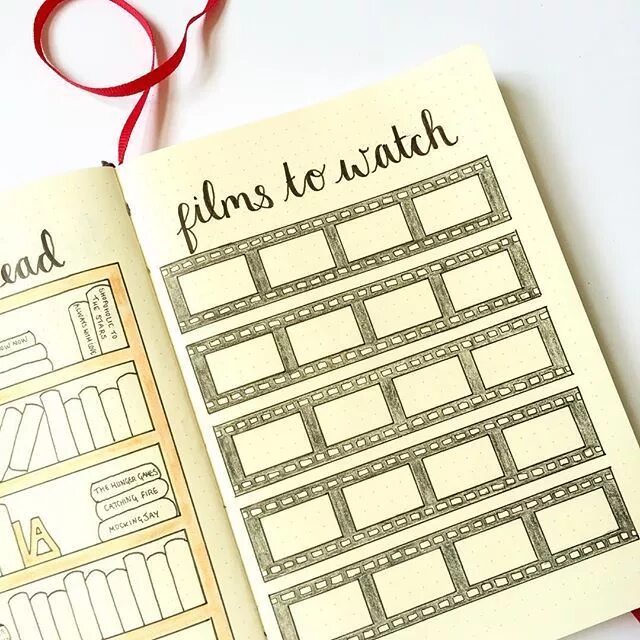 ead
SHOPOHOLIC TO
THE STARS
ALWAYS WITH LOVE
NOW NOW
THE HUNGER GAMES
CATCHING FIRE
MOCKINGJAY
films to watch